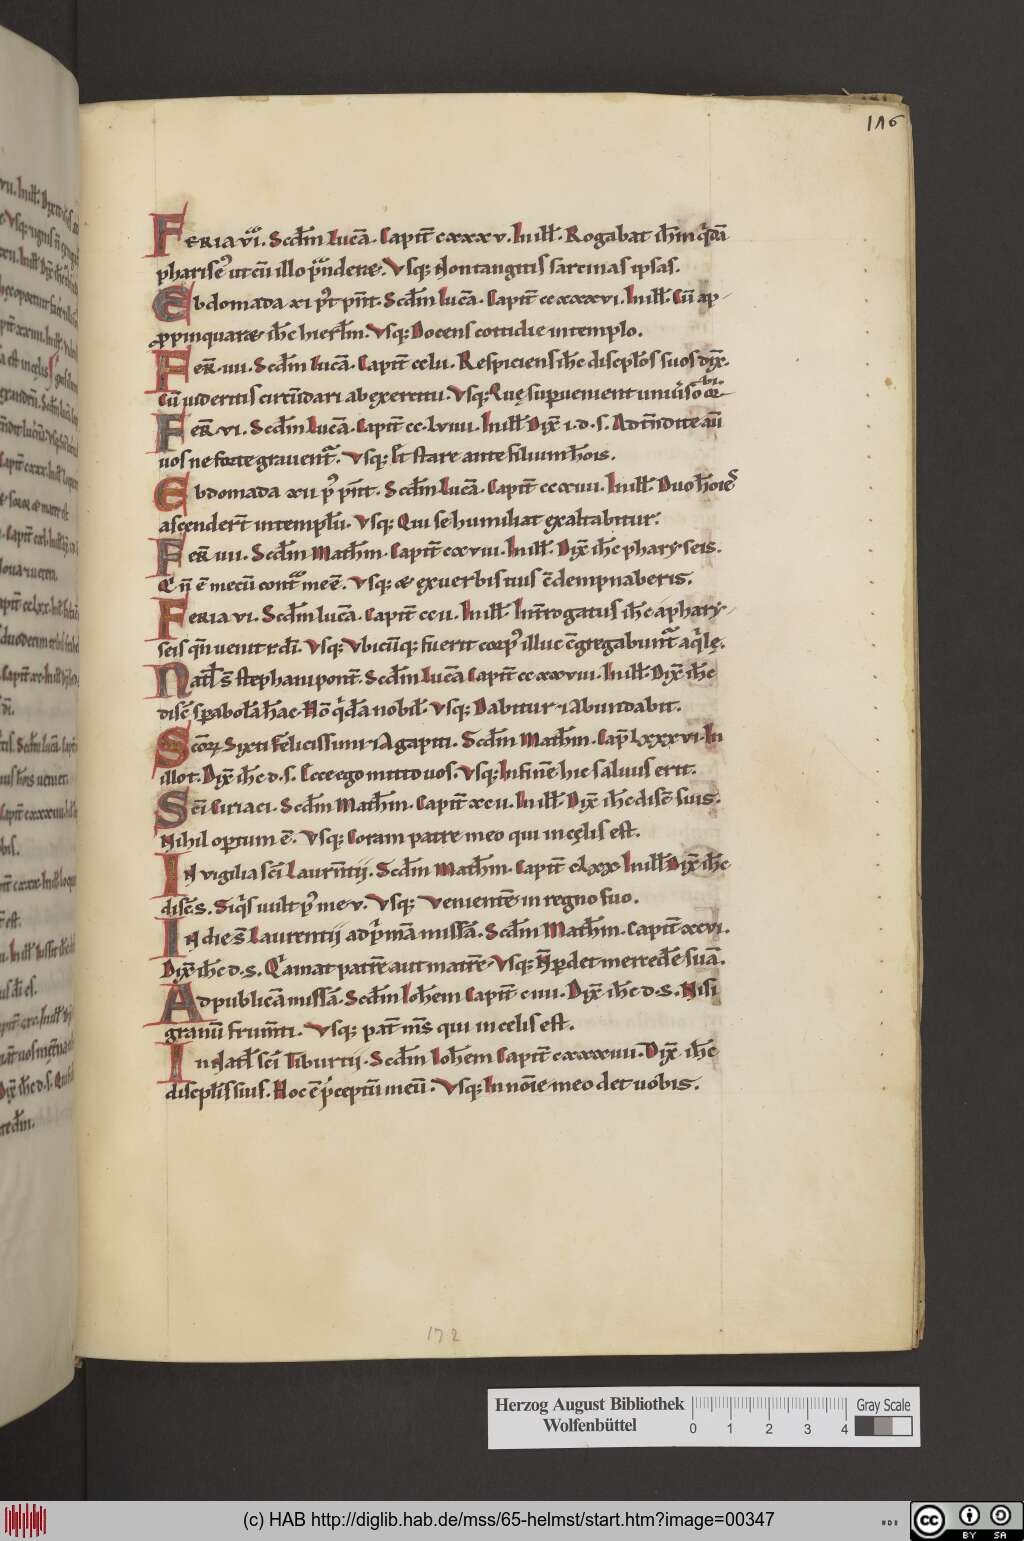 116
Feria vi. Scdm Lucā. Capit̄ cxxxv. In illt̄. Rogabat ihm q̄dā
pharise' ut cū illo pͣnderet. Usq; Non tangitis sarcinas ipsas.
Ebdomada xi p't pn̄t. Scdm Lucā. Capit̄ ccxxxvi. In ill. Cū ap-
propinquaret ihc hierlm. Usq; Docens cottidie in templo.
Fer̄. iiii. Scdm Lucā. Capit̄ cclu. Respiciens ihc discplōs suos dix̄.
Cū uideritis circūdari ab exercitu. Usq; Quę supuenient uniūso orbi
Fer̄. vi. Scdm Lucā. Capit̄ cc. lviiii. In ill. Dix̄ i. d. s. Adtn̄dite aū
uos ne forte grauent̄. Usq; &t stare ante filium hōis.
Ebdomada xii p' pn̄t. Scdm Lucā. Capit̄ ccxiiii. In ill. Duo hōies
ascendert̄ in templū. Usq; Qui se humiliat exaltabitur.
Fer̄ iiii. Scdm Mathm. Capit̄ cxviii. In ill. Dix̄ ihc phariseis.
Q n̄ ē mecū contͣ me ē. Usq; et ex uerbis tuis c̄dempnaberis.
Feria vi. Scdm lucā. Capit̄ ccii. In ill. Int̄rogatus ihc a phary-
seis qn̄ uenit r. dī. Usq; Ubicūq; fuerit corp' illuc c̄gregabunt̄ aq̄lę.
Natl̄ s̄ stephani pont̄. Scdm Lucā Capit̄ ccxxviii. In ill. Dix̄ ihc
disc̄ s pabolā hac. Hō q̄dā nobil. Usq; Dabitur & abundabit.
Scōrꝝ Sixti Felicissimi & Agapiti. Scdm Mathm. Cap̄ lxxxvi. In
illo t. Dix̄ ihc d. s. Ecce ego mitto uos. Usq; In finē hic saluus erit.
Scī Ciriaci. Scdm Mathm. Capit̄ xcii. In ill. Dix̄ ihc disc̄ suis.
Nihil optum ē. Usq; Coram patre meo qui in cęlis est.
In vigilia scī Laurn̄tij. Scdm Mathm. Capit̄ clxx. In ill. Dix̄ ihc
disc̄ s. Siq̄s uult p' me v. Usq; Venientē in regno suo.
In die s̄ Laurentii ad pͥmā missā. Scdm Mathm. Capit̄ xcvi.
Dix̄ ihc d. s. Q' amat patrē aut matrē. Usq; N̄ pdet mercedē suā.
Ad publicā missā. Scdm Iohem Capit̄ ciiii. Dix̄ ihc d. s. Nisi
granū frumn̄ti. Usq; pat̄ ms̄ qui in celis est.
In Natl̄ scī Tiburtij. Scdm Iohem Capit̄ cxxxxiiii. Dix̄ ihc
discplis suis. Hoc ē pͥceptū meū. Usq; In nōie meo det uobis.
172
Herzog August Bibliothek
Wolfenbüttel
0 1 2 3 4
Gray Scale
(c) HAB http://diglib.hab.de/mss/65-helmst/start.htm?image=00347
cc BY SA